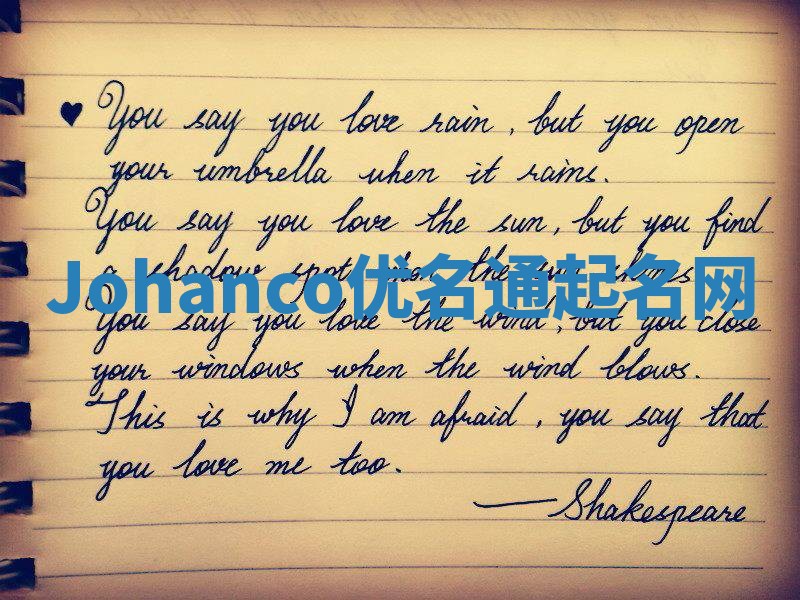 ♥ You say you love rain, but you open
your umbrella when it rains.
You say you love the sun, but you find
a shadow spot when the sun shines
Johanco优名通起名网
You say you love the wind, but you close
your windows when the wind blows.
This is why I am afraid, you say that
you love me too.
— Shakespeare